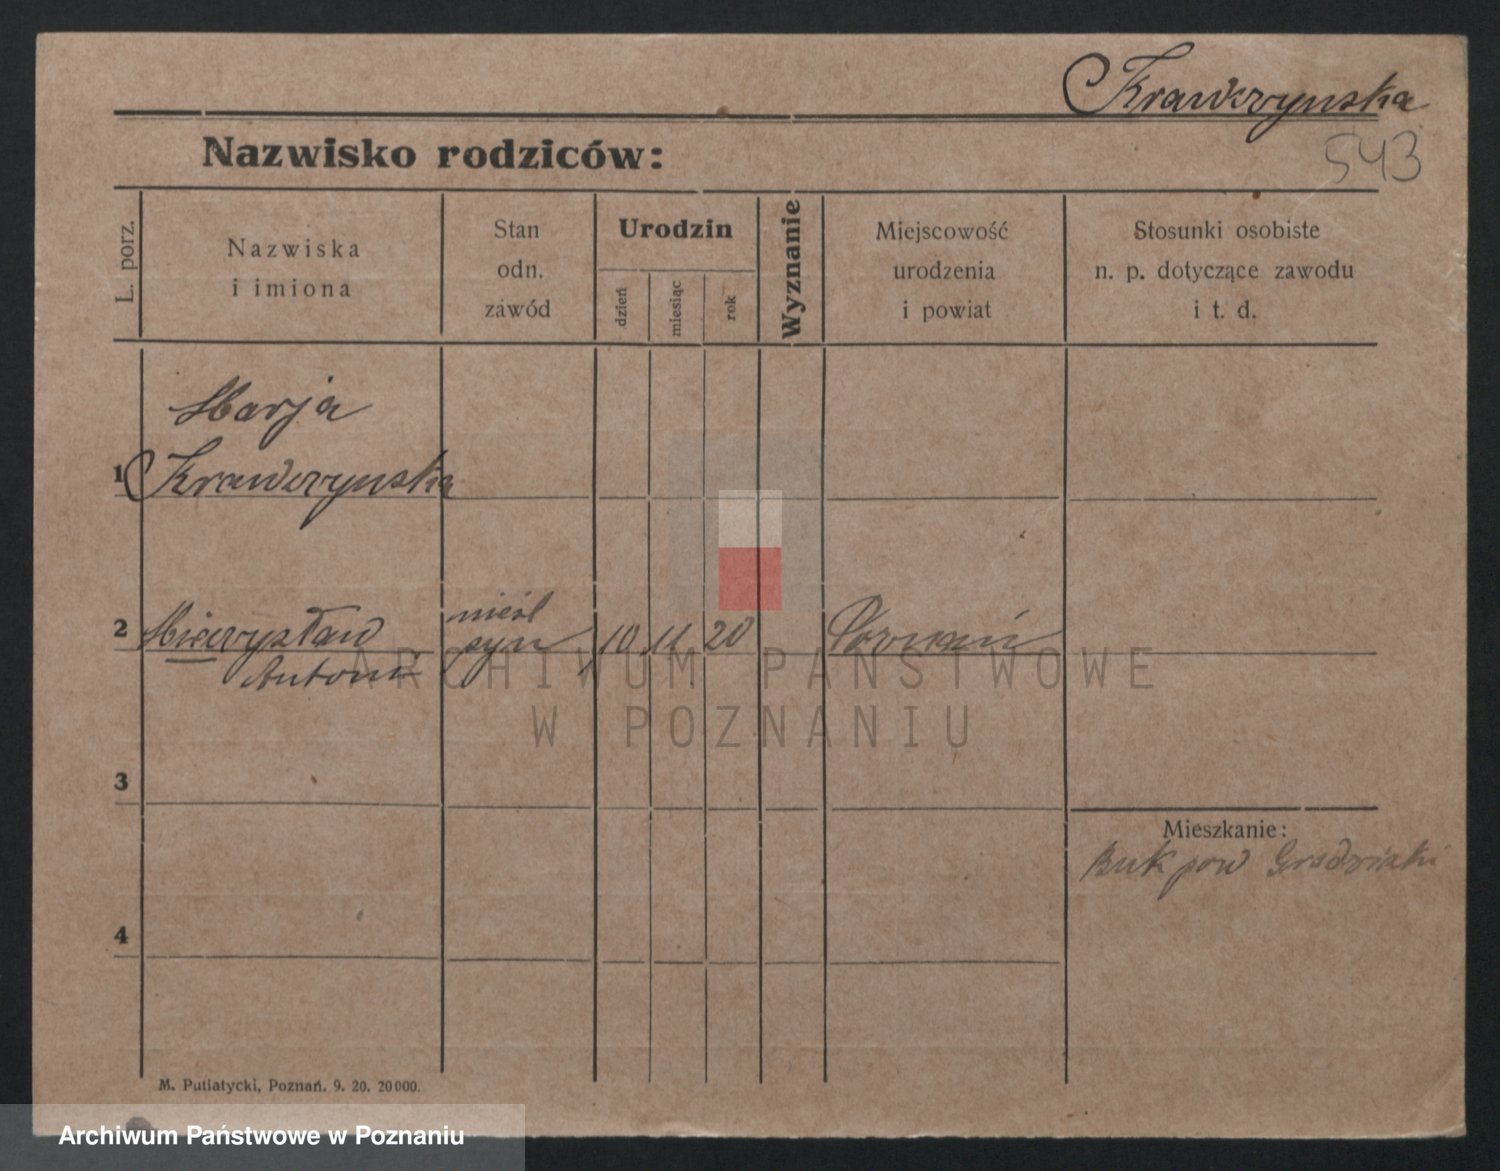 Krawczynska
Nazwisko rodziców:
543
L. porz.
Nazwiska
i imiona
Stan
odn.
zawód
Urodzin
dzień
miesiąc
rok
Wyznanie
Miejscowość
urodzenia
i powiat
Stosunki osobiste
n. p. dotyczące zawodu
i t. d.
Marja
1 Krawczynska
2 Mieczysław
Antoni
nieśl
syn
10 11 20
Poznań
3
Mieszkanie:
Buk pow Grodziski
4
M. Putiatycki, Poznań. 9. 20. 20000.
ARCHIWUM PAŃSTWOWE
W POZNANIU
Archiwum Państwowe w Poznaniu